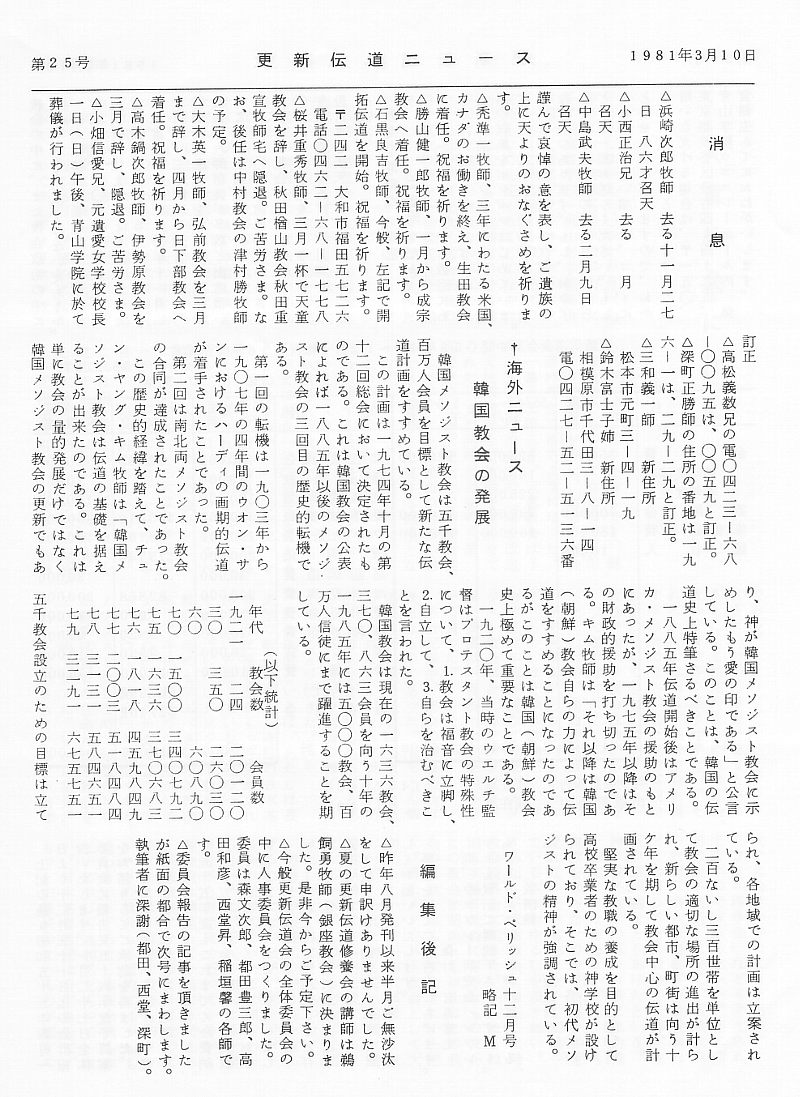 第25号
更新伝道ニュース
1981年3月10日
消息
△浜崎次郎牧師　去る十一月二七
日　八六才召天
△小西正治兄　去る　　月
召天
△中島武夫牧師　去る二月九日
召天
謹んで哀悼の意を表し、ご遺族の
上に天よりのおなぐさめを祈りま
す。
△禿準一牧師、三年にわたる米国、
カナダのお働きを終え、生田教会
に着任。祝福を祈ります。
△勝山健一郎牧師、一月から成宗
教会へ着任。祝福を祈ります。
△石黒良吉牧師、今般、左記で開
拓伝道を開始。祝福を祈ります。
〒二四二　大和市福田五七二六
電話〇四六二ー六八ー一七七八
△桜井重秀牧師、三月一杯で天童
教会を辞し、秋田楢山教会秋田重
宣牧師宅へ隠退。ご苦労さま。な
お、後任は中村教会の津村勝牧師
の予定。
△大木英一牧師、弘前教会を三月
まで辞し、四月から日下部教会へ
着任。祝福を祈ります。
△高木鍋次郎牧師、伊勢原教会を
三月で辞し、隠退。ご苦労さま。
△小畑信愛兄、元遺愛女学校校長
一日（日）午後、青山学院に於て
葬儀が行われました。
訂正
△高松義数兄の電〇四二三ー六八
ー〇〇九五は、〇〇五九と訂正。
△深町正勝師の住所の番地は一九
六ー一は、二九ー二九と訂正。
△三和義一師　新住所
松本市元町三ー四ー一九
△鈴木富士子姉　新住所
相模原市千代田三ー八ー一四
電〇四二七ー五二ー五一三六番
†海外ニュース
韓国教会の発展
韓国メソジスト教会は五千教会、
百万人会員を目標として新たな伝
道計画をすすめている。
この計画は一九七四年十月の第
十二回総会において決定されたも
のである。これは韓国教会の公表
によれば一八八五年以後のメソジ
スト教会の三回目の歴史的転機で
ある。
第一回の転機は一九〇三年から
一九〇七年の四年間のウオン・サ
ンにおけるハーディの画期的伝道
が着手されたことであった。
第二回は南北両メソジスト教会
の合同が達成されたことであった。
この歴史的経緯を踏えて、チュ
ン・ヤング・キム牧師は「韓国メ
ソジスト教会は伝道の基礎を据え
ることが出来たのである。これは
単に教会の量的発展だけではなく
韓国メソジスト教会の更新でもあ
り、神が韓国メソジスト教会に示
めしたもう愛の印である」と公言
している。このことは、韓国の伝
道史上特筆さるべきことである。
一八八五年伝道開始後はアメリ
カ・メソジスト教会の援助のもと
にあったが、一九七五年以降はそ
の財政的援助を打ち切ったのであ
る。キム牧師は「それ以降は韓国
（朝鮮）教会自らの力によって伝
道をすすめることになったのであ
るがこのことは韓国（朝鮮）教会
史上極めて重要なことである。
一九二〇年、当時のウエルチ監
督はプロテスタント教会の特殊性
について、1.教会は福音に立脚し、
2.自立して、3.自らを治むべきこ
とを言われた。
韓国教会は現在の一六三六教会、
三七〇、八六三会員を向う十年の
一九八五年には五〇〇〇教会、百
万人信徒にまで躍進することを期
している。
（以下統計）
年代　教会数　会員数
一九二一　二四　二〇一二〇
三〇　三五〇　二六〇三〇
六〇　　六〇八九〇
七〇　一五〇〇　三四〇七九二
七五　一六三六　三七〇六八三
七六　一八一八　四五九八四九
七七　二〇〇三　五一八四八四
七八　三一三一　五八四六五一
七九　三二九一　六七五七五一
五千教会設立のための目標は立て
られ、各地域での計画は立案され
ている。
二百ないし三百世帯を単位とし
て教会の適切な場所の進出が計ら
れ、新らしい都市、町街は向う十
ケ年を期して教会中心の伝道が計
画されている。
堅実な教職の養成を目的として
高校卒業者のための神学校が設け
られており、そこでは、初代メソ
ジストの精神が強調されている。
ワールド・ベリッシュ十二月号
略記　M
編集後記
△昨年八月発刊以来半月ご無沙汰
をして申訳けありませんでした。
△夏の更新伝道修養会の講師は鵜
飼勇牧師（銀座教会）に決まりま
した。是非今からご予定下さい。
△今般更新伝道会の全体委員会の
中に人事委員会をつくりました。
委員は森文次郎、都田豊三郎、高
田和彦、西堂昇、稲垣馨の各師で
す。
△委員会報告の記事を頂きました
が紙面の都合で次号にまわします。
執筆者に深謝（都田、西堂、深町）。